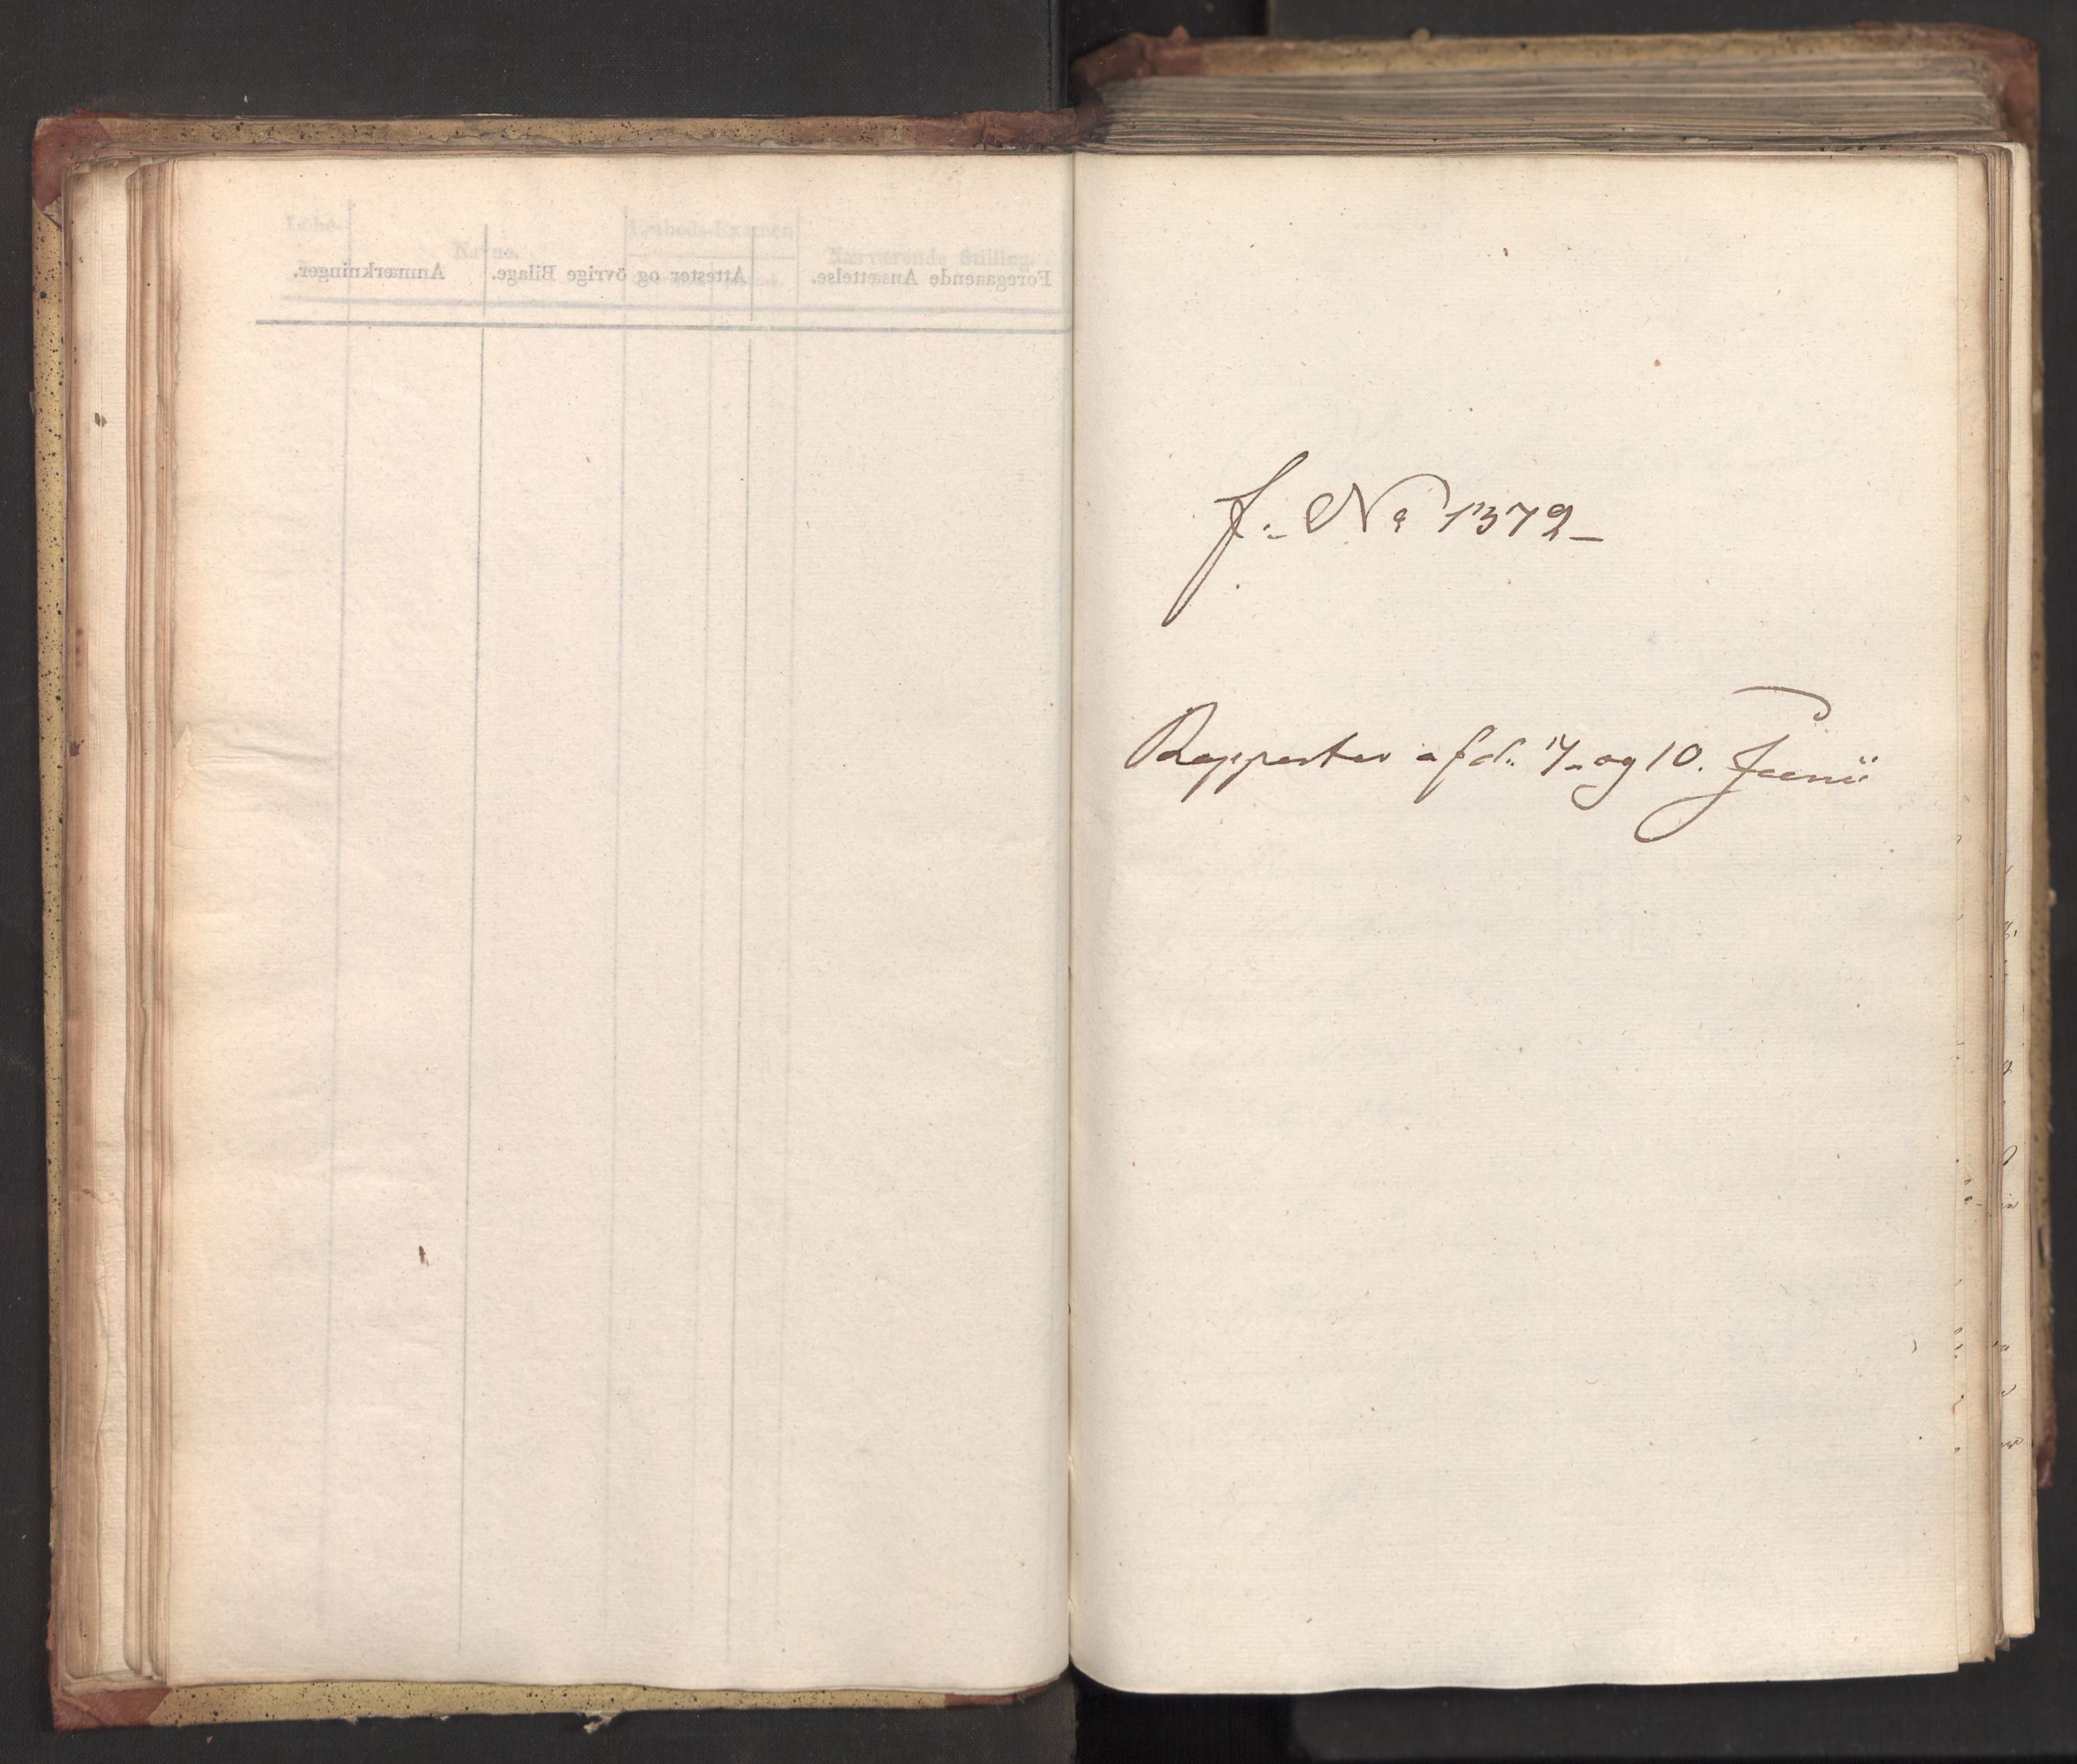 Löbe-
Navne.
Lærheds-Examen
Nærværende Stilling.
Anmærkninger.
Attester og övrige Bilage.
Foregaaende Ansættelse.
f. No 1372-
Rapporter af d. 7. og 10. Juni